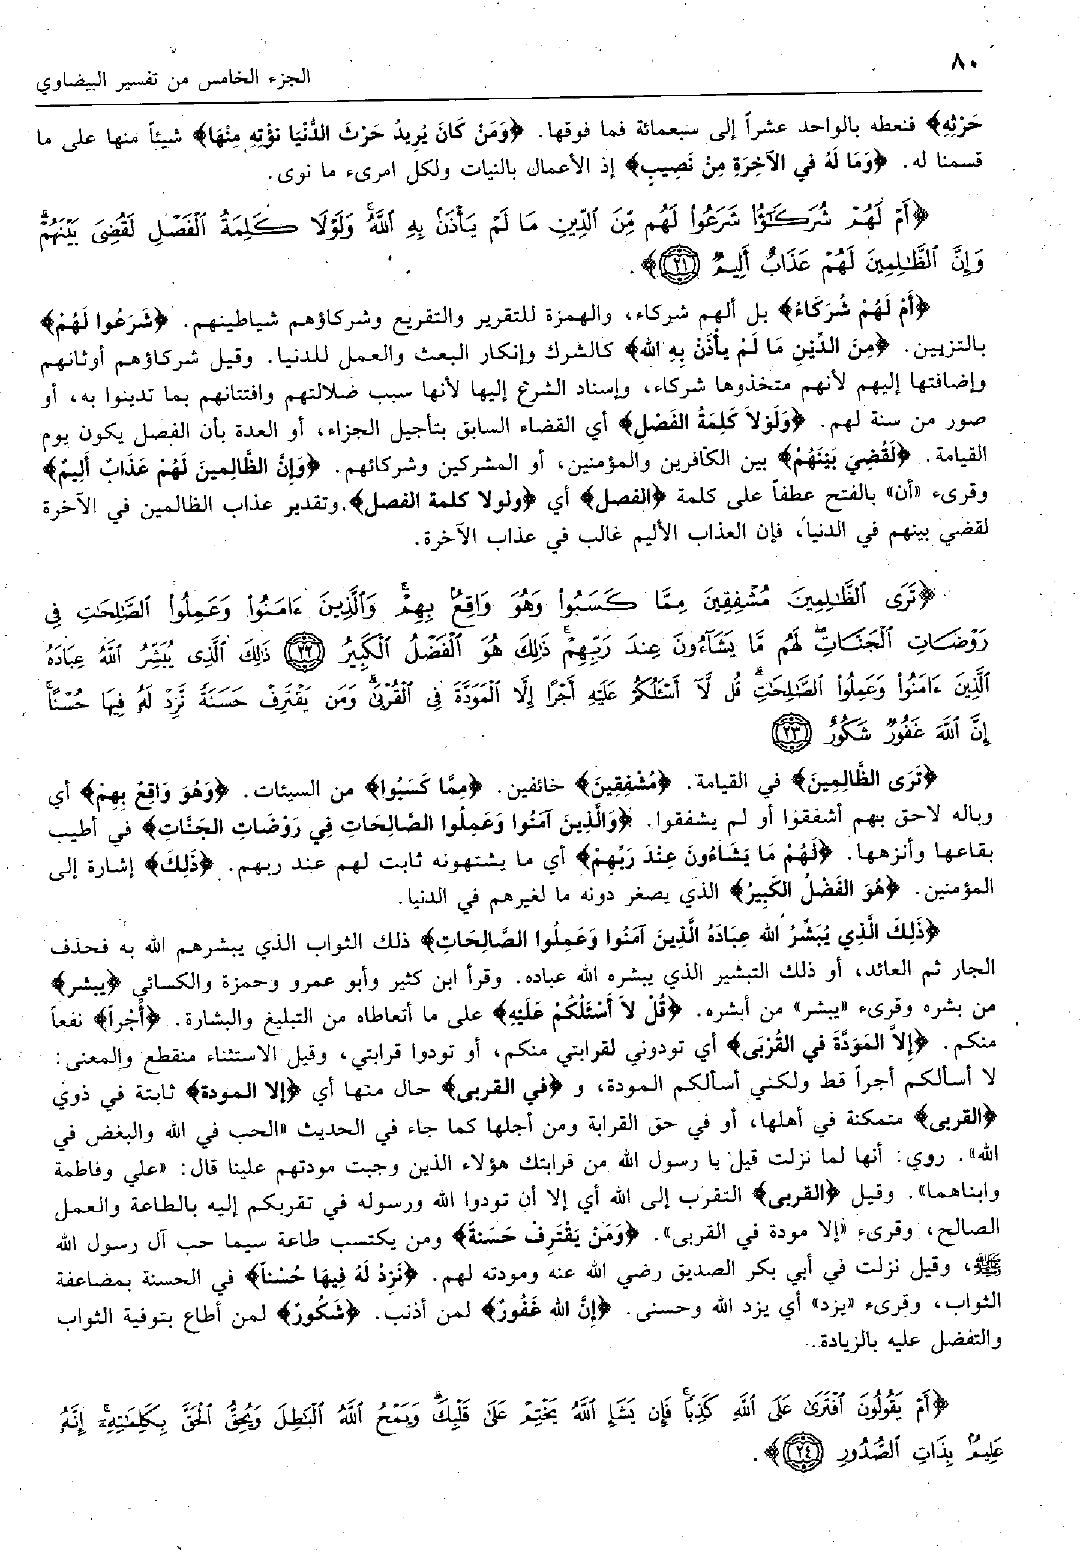 ٨٠
الجزء الخامس من تفسير البيضاوي
حَرْثِهِ﴾ فنعطه بالواحد عشراً إلى سبعمائة فما فوقها. ﴿وَمَنْ كَانَ يُرِيدُ حَرْثَ الدُّنْيَا نؤتِهِ مِنْهَا﴾ شيئاً منها على ما
قسمنا له. ﴿وَمَا لَهُ في الآخِرَةِ مِنْ نَصِيبٍ﴾ إذ الأعمال بالنيات ولكل امرىء ما نوى.
﴿أَمْ لَهُمْ شُرَكَٰٓؤُا۟ شَرَعُوا۟ لَهُم مِّنَ ٱلدِّينِ مَا لَمْ يَأْذَنۢ بِهِ ٱللَّهُۚ وَلَوْلَا كَلِمَةُ ٱلْفَصْلِ لَقُضِىَ بَيْنَهُمْۗ
وَإِنَّ ٱلظَّٰلِمِينَ لَهُمْ عَذَابٌ أَلِيمٌ ٢١﴾.
﴿أَمْ لَهُمْ شُرَكَاءُ﴾ بل ألهم شركاء، والهمزة للتقرير والتفريع وشركاؤهم شياطينهم. ﴿شَرَعُوا لَهُمْ﴾
بالتزيين. ﴿مِنَ الدِّيْنِ مَا لَمْ يأذَنْ بِهِ الله﴾ كالشرك وإنكار البعث والعمل للدنيا. وقيل شركاؤهم أوثانهم
وإضافتها إليهم لأنهم متخذوها شركاء، وإسناد الشرع إليها لأنها سبب ضلالتهم وافتتانهم بما تدينوا به، أو
صور من سنة لهم. ﴿وَلَوْلاَ كَلِمَةُ الفَصْلِ﴾ أي القضاء السابق بتأجيل الجزاء، أو العدة بأن الفصل يكون يوم
القيامة. ﴿لَقُضِيَ بَيْنَهُمْ﴾ بين الكافرين والمؤمنين، أو المشركين وشركائهم. ﴿وَإِنَّ الظَّالِمِينَ لَهُمْ عَذَابٌ أَلِيمٌ﴾
وقرىء «أن» بالفتح عطفاً على كلمة ﴿الفصل﴾ أي ﴿ولولا كلمة الفصل﴾ وتقدير عذاب الظالمين في الآخرة
لقضي بينهم في الدنيا، فإن العذاب الأليم غالب في عذاب الآخرة.
﴿تَرَى ٱلظَّٰلِمِينَ مُشْفِقِينَ مِمَّا كَسَبُوا۟ وَهُوَ وَاقِعٌۢ بِهِمْۗ وَٱلَّذِينَ ءَامَنُوا۟ وَعَمِلُوا۟ ٱلصَّٰلِحَٰتِ فِى
رَوْضَاتِ ٱلْجَنَّاتِۖ لَهُم مَّا يَشَآءُونَ عِندَ رَبِّهِمْۚ ذَٰلِكَ هُوَ ٱلْفَضْلُ ٱلْكَبِيرُ ٢٢ ذَٰلِكَ ٱلَّذِى يُبَشِّرُ ٱللَّهُ عِبَادَهُ
ٱلَّذِينَ ءَامَنُوا۟ وَعَمِلُوا۟ ٱلصَّٰلِحَٰتِۗ قُل لَّآ أَسْـَٔلُكُمْ عَلَيْهِ أَجْرًا إِلَّا ٱلْمَوَدَّةَ فِى ٱلْقُرْبَىٰۗ وَمَن يَقْتَرِفْ حَسَنَةً نَّزِدْ لَهُۥ فِيهَا حُسْنًاۚ
إِنَّ ٱللَّهَ غَفُورٌ شَكُورٌ ٢٣
﴿تَرَى الظَّالِمِينَ﴾ في القيامة. ﴿مُشْفِقِينَ﴾ خائفين. ﴿مِمَّا كَسَبُوا﴾ من السيئات. ﴿وَهُوَ وَاقِعٌ بِهِمْ﴾ أي
وباله لاحق بهم أشفقوا أو لم يشفقوا. ﴿وَالَّذِينَ آمَنُوا وَعَمِلُوا الصَّالِحَاتِ فِي رَوْضَاتِ الجَنَّات﴾ في أطيب
بقاعها وأنزهها. ﴿لَهُمْ مَا يَشَاءُونَ عِنْدَ رَبِّهِمْ﴾ أي ما يشتهونه ثابت لهم عند ربهم. ﴿ذَلِكَ﴾ إشارة إلى
المؤمنين. ﴿هُوَ الفَضْلُ الكَبِيرُ﴾ الذي يصغر دونه ما لغيرهم في الدنيا.
﴿ذَلِكَ الَّذِي يُبَشِّرُ الله عِبَادَهُ الَّذِينَ آمَنُوا وَعَمِلُوا الصَّالِحَاتِ﴾ ذلك الثواب الذي يبشرهم الله به فحذف
الجار ثم العائد، أو ذلك التبشير الذي يبشره الله عباده. وقرأ ابن كثير وأبو عمرو وحمزة والكسائي ﴿يبشر﴾
من بشره وقرىء «يبشر» من أبشره. ﴿قُلْ لاَ أَسْئَلُكُمْ عَلَيْهِ﴾ على ما أتعاطاه من التبليغ والبشارة. ﴿أَجْراً﴾ نفعاً
منكم. ﴿إِلاَّ المَوَدَّةَ في القُرْبَى﴾ أي تودوني لقرابتي منكم، أو تودوا قرابتي، وقيل الاستثناء منقطع والمعنى:
لا أسألكم أجراً قط ولكني أسألكم المودة، و ﴿في القربى﴾ حال منها أي ﴿إلا المودة﴾ ثابتة في ذوي
﴿القربى﴾ متمكنة في أهلها، أو في حق القرابة ومن أجلها كما جاء في الحديث «الحب في الله والبغض في
الله». روي: أنها لما نزلت قيل يا رسول الله من قرابتك هؤلاء الذين وجبت مودتهم علينا قال: «علي وفاطمة
وابناهما». وقيل ﴿القربى﴾ التقرب إلى الله أي إلا أن تودوا الله ورسوله في تقربكم إليه بالطاعة والعمل
الصالح، وقرىء «إلا مودة في القربى». ﴿وَمَنْ يَقْتَرِفْ حَسَنَةً﴾ ومن يكتسب طاعة سيما حب آل رسول الله
ﷺ، وقيل نزلت في أبي بكر الصديق رضي الله عنه ومودته لهم. ﴿نَزِدْ لَهُ فِيهَا حُسْناً﴾ في الحسنة بمضاعفة
الثواب، وقرىء «يزد» أي يزد الله وحسنى. ﴿إِنَّ الله غَفُورٌ﴾ لمن أذنب. ﴿شَكُورٌ﴾ لمن أطاع بتوفية الثواب
والتفضل عليه بالزيادة.
﴿أَمْ يَقُولُونَ ٱفْتَرَىٰ عَلَى ٱللَّهِ كَذِبًاۖ فَإِن يَشَإِ ٱللَّهُ يَخْتِمْ عَلَىٰ قَلْبِكَۗ وَيَمْحُ ٱللَّهُ ٱلْبَٰطِلَ وَيُحِقُّ ٱلْحَقَّ بِكَلِمَٰتِهِۦٓۚ إِنَّهُۥ
عَلِيمٌۢ بِذَاتِ ٱلصُّدُورِ ٢٤﴾.